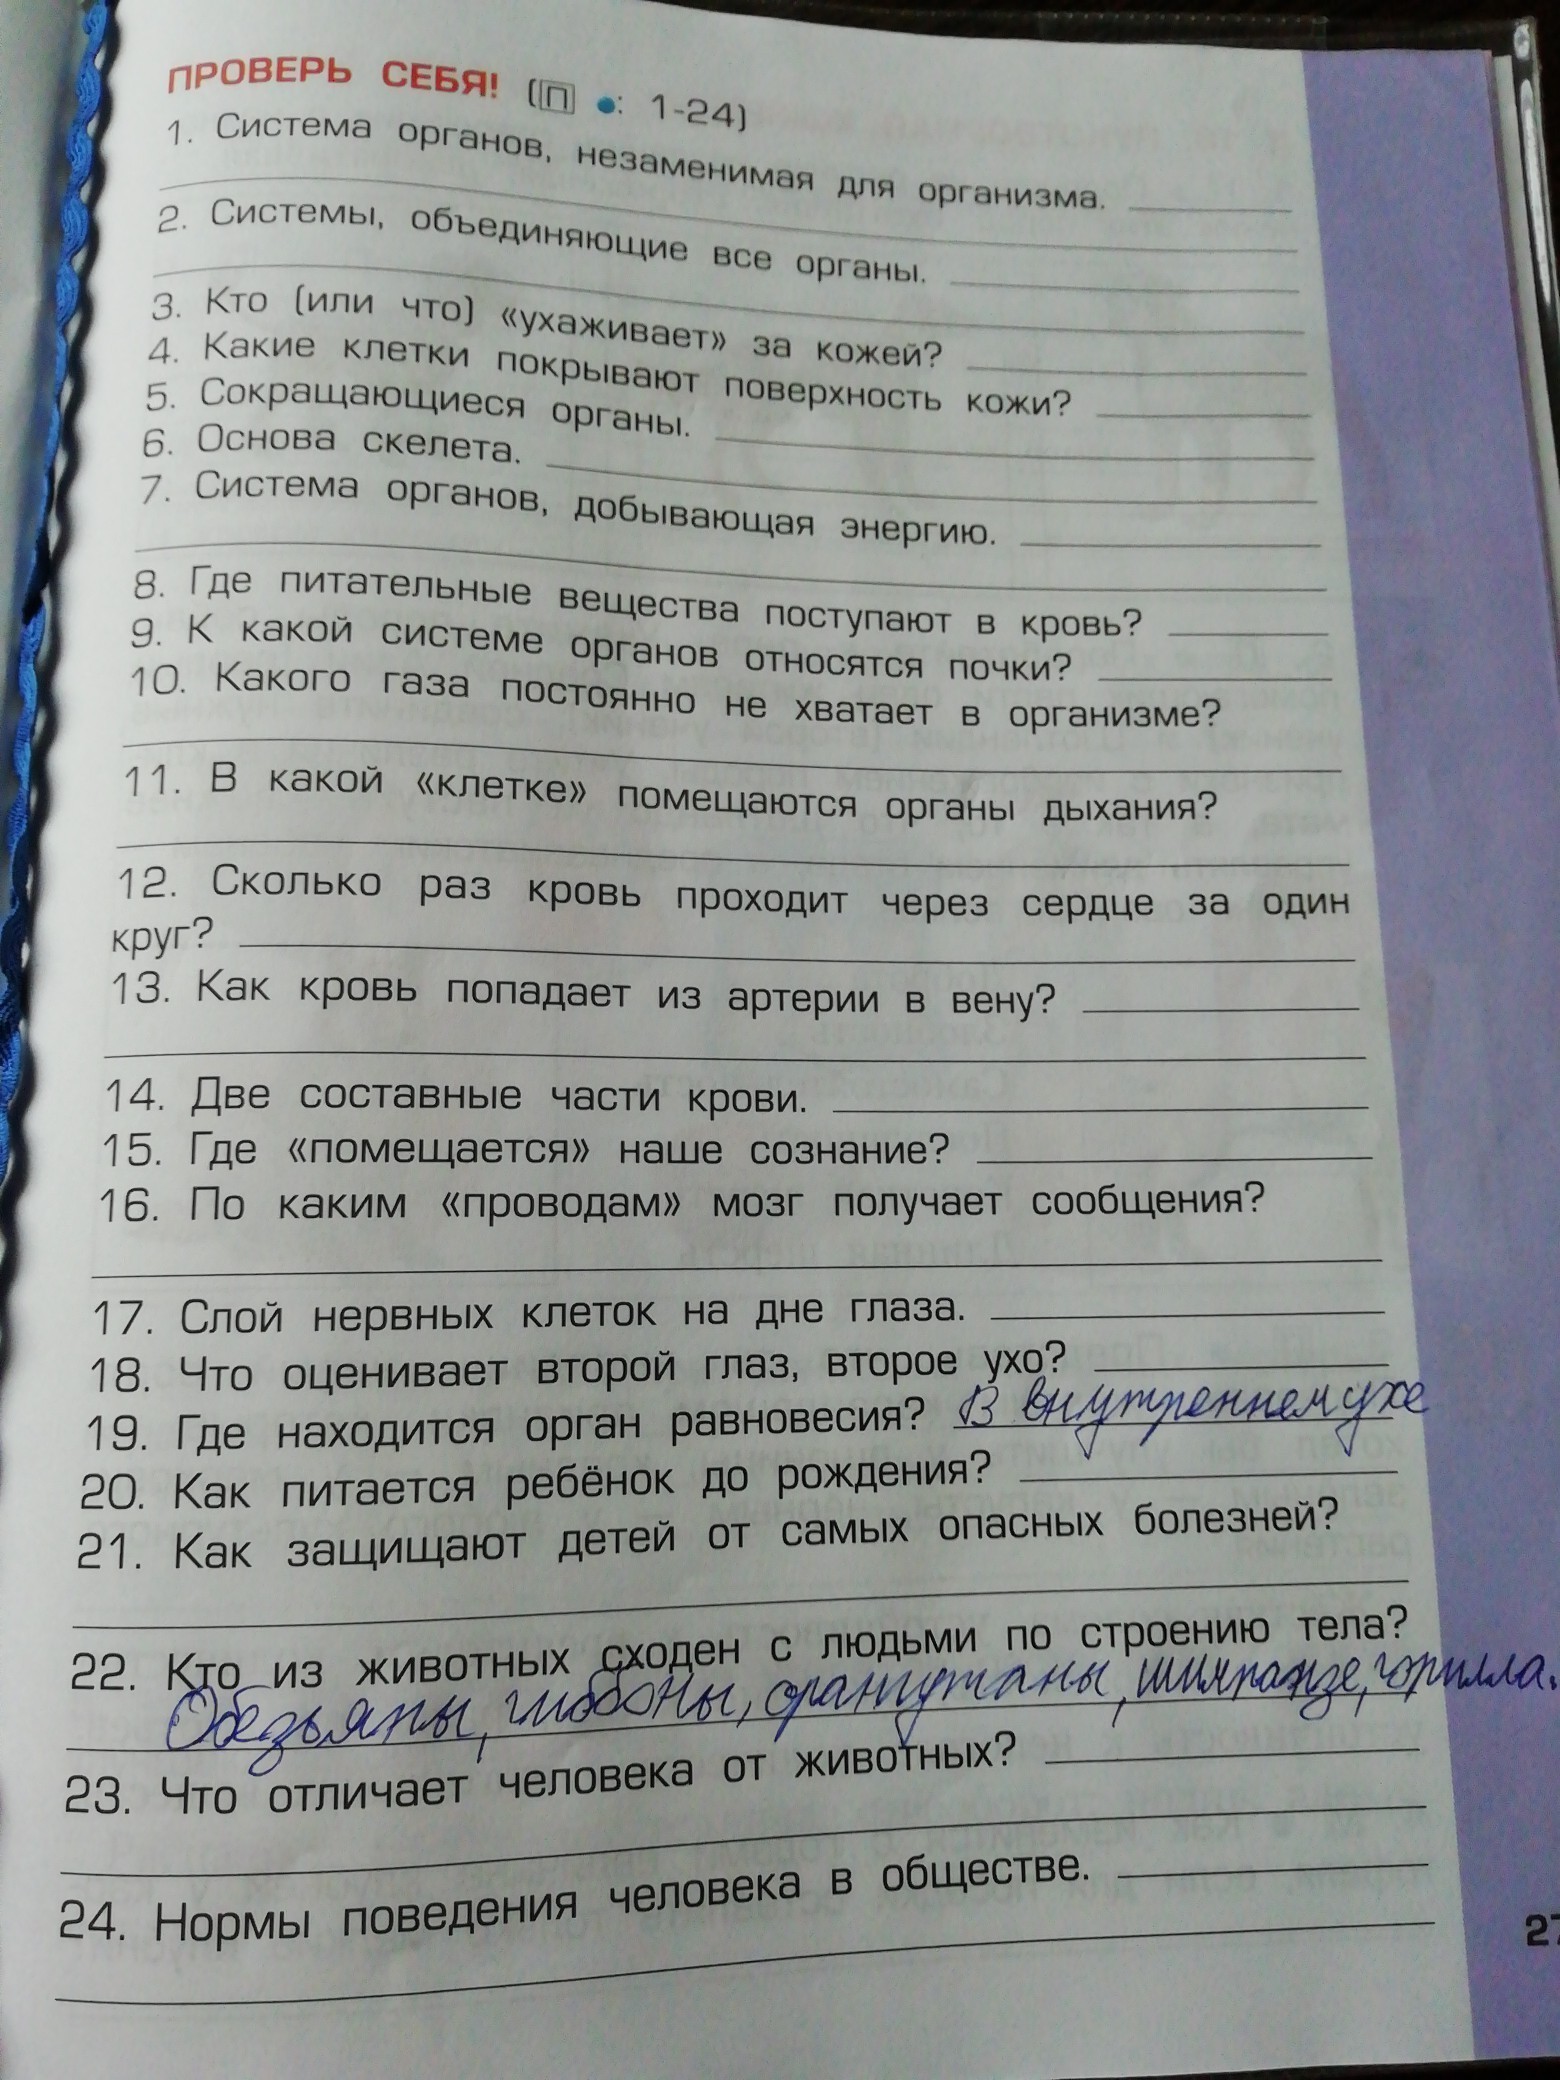 ПРОВЕРЬ СЕБЯ! (П ●: 1-24)
1. Система органов, незаменимая для организма.
2. Системы, объединяющие все органы.
3. Кто (или что) «ухаживает» за кожей?
4. Какие клетки покрывают поверхность кожи?
5. Сокращающиеся органы.
6. Основа скелета.
7. Система органов, добывающая энергию.
8. Где питательные вещества поступают в кровь?
9. К какой системе органов относятся почки?
10. Какого газа постоянно не хватает в организме?
11. В какой «клетке» помещаются органы дыхания?
12. Сколько раз кровь проходит через сердце за один
круг?
13. Как кровь попадает из артерии в вену?
14. Две составные части крови.
15. Где «помещается» наше сознание?
16. По каким «проводам» мозг получает сообщения?
17. Слой нервных клеток на дне глаза.
18. Что оценивает второй глаз, второе ухо?
19. Где находится орган равновесия? В внутреннем ухе
20. Как питается ребёнок до рождения?
21. Как защищают детей от самых опасных болезней?
22. Кто из животных сходен с людьми по строению тела?
Обезьяны, гиббоны, орангутаны, шимпанзе, горилла.
23. Что отличает человека от животных?
24. Нормы поведения человека в обществе.
27